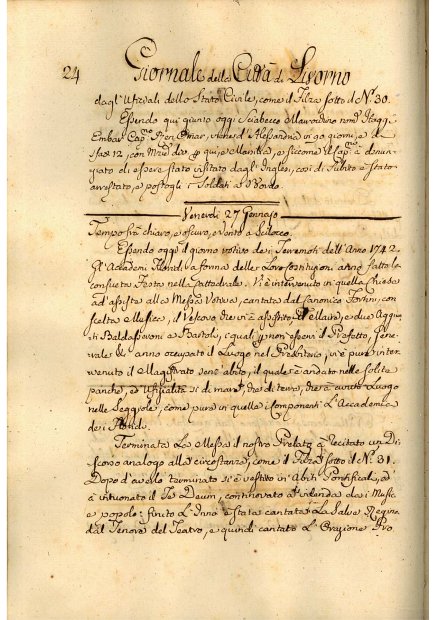 24 Giornale della Città di Livorno
dagl'Ufiziali dello Stato Civile, come il Filza sotto di N.º 30.
Essendo qui giunto oggi Sciabecco
Embar Cap.no d'Alessandria in 90 giorni, e di
12, con qui, e Manilia, e siccome il Cap.no à denun-
ziato di essere stato visitato dagl'Inglesi, così di subito è stato
arrestato, e postogli i Soldati a Bordo.
Venerdì 27 Gennajo
Tempo frà chiaro, e oscuro, e vento a Scilocco.
Essendo oggi il giorno votivo dei Terremoti dell'Anno 1742.
Gl'Accademici a forma delle Loro costituzioni anno fatto la
consueta Festa nella Cattedrale. Vi è intervenuto in quella Chiesa
ad'assistere alla Messa Votiva, cantata dal Canonico con
scelta Musica, il Vescovo che vi à assistito, e due
Baldasseroni e Bartoli, i quali per non esservi il Prefetto, Gene-
rale anno occupato il Luogo nel Presbiterio, vi è pure inter-
venuto il Magistrato senz'abito, il quale è andato nelle solite
panche, ed Ufizialità sì di mare, che di terra, che à avuto Luogo
nelle Seggiole, come pure in quelle i Componenti L'Accademia
dei
Terminata La Messa il nostro Prelato à recitato un Di-
scorso analogo alla circostanza, come il Filza sotto il N.º 31.
Dopo d'averlo terminato si è vestito in Abiti Pontificali, ed
à intuonato il Te Deum, continovato a vicenda dai Musici
e popolo: finito L'Inno è stata cantata La Salve Regina
dal Tenore del Teatro, e quindi cantato L'Orazione Pro